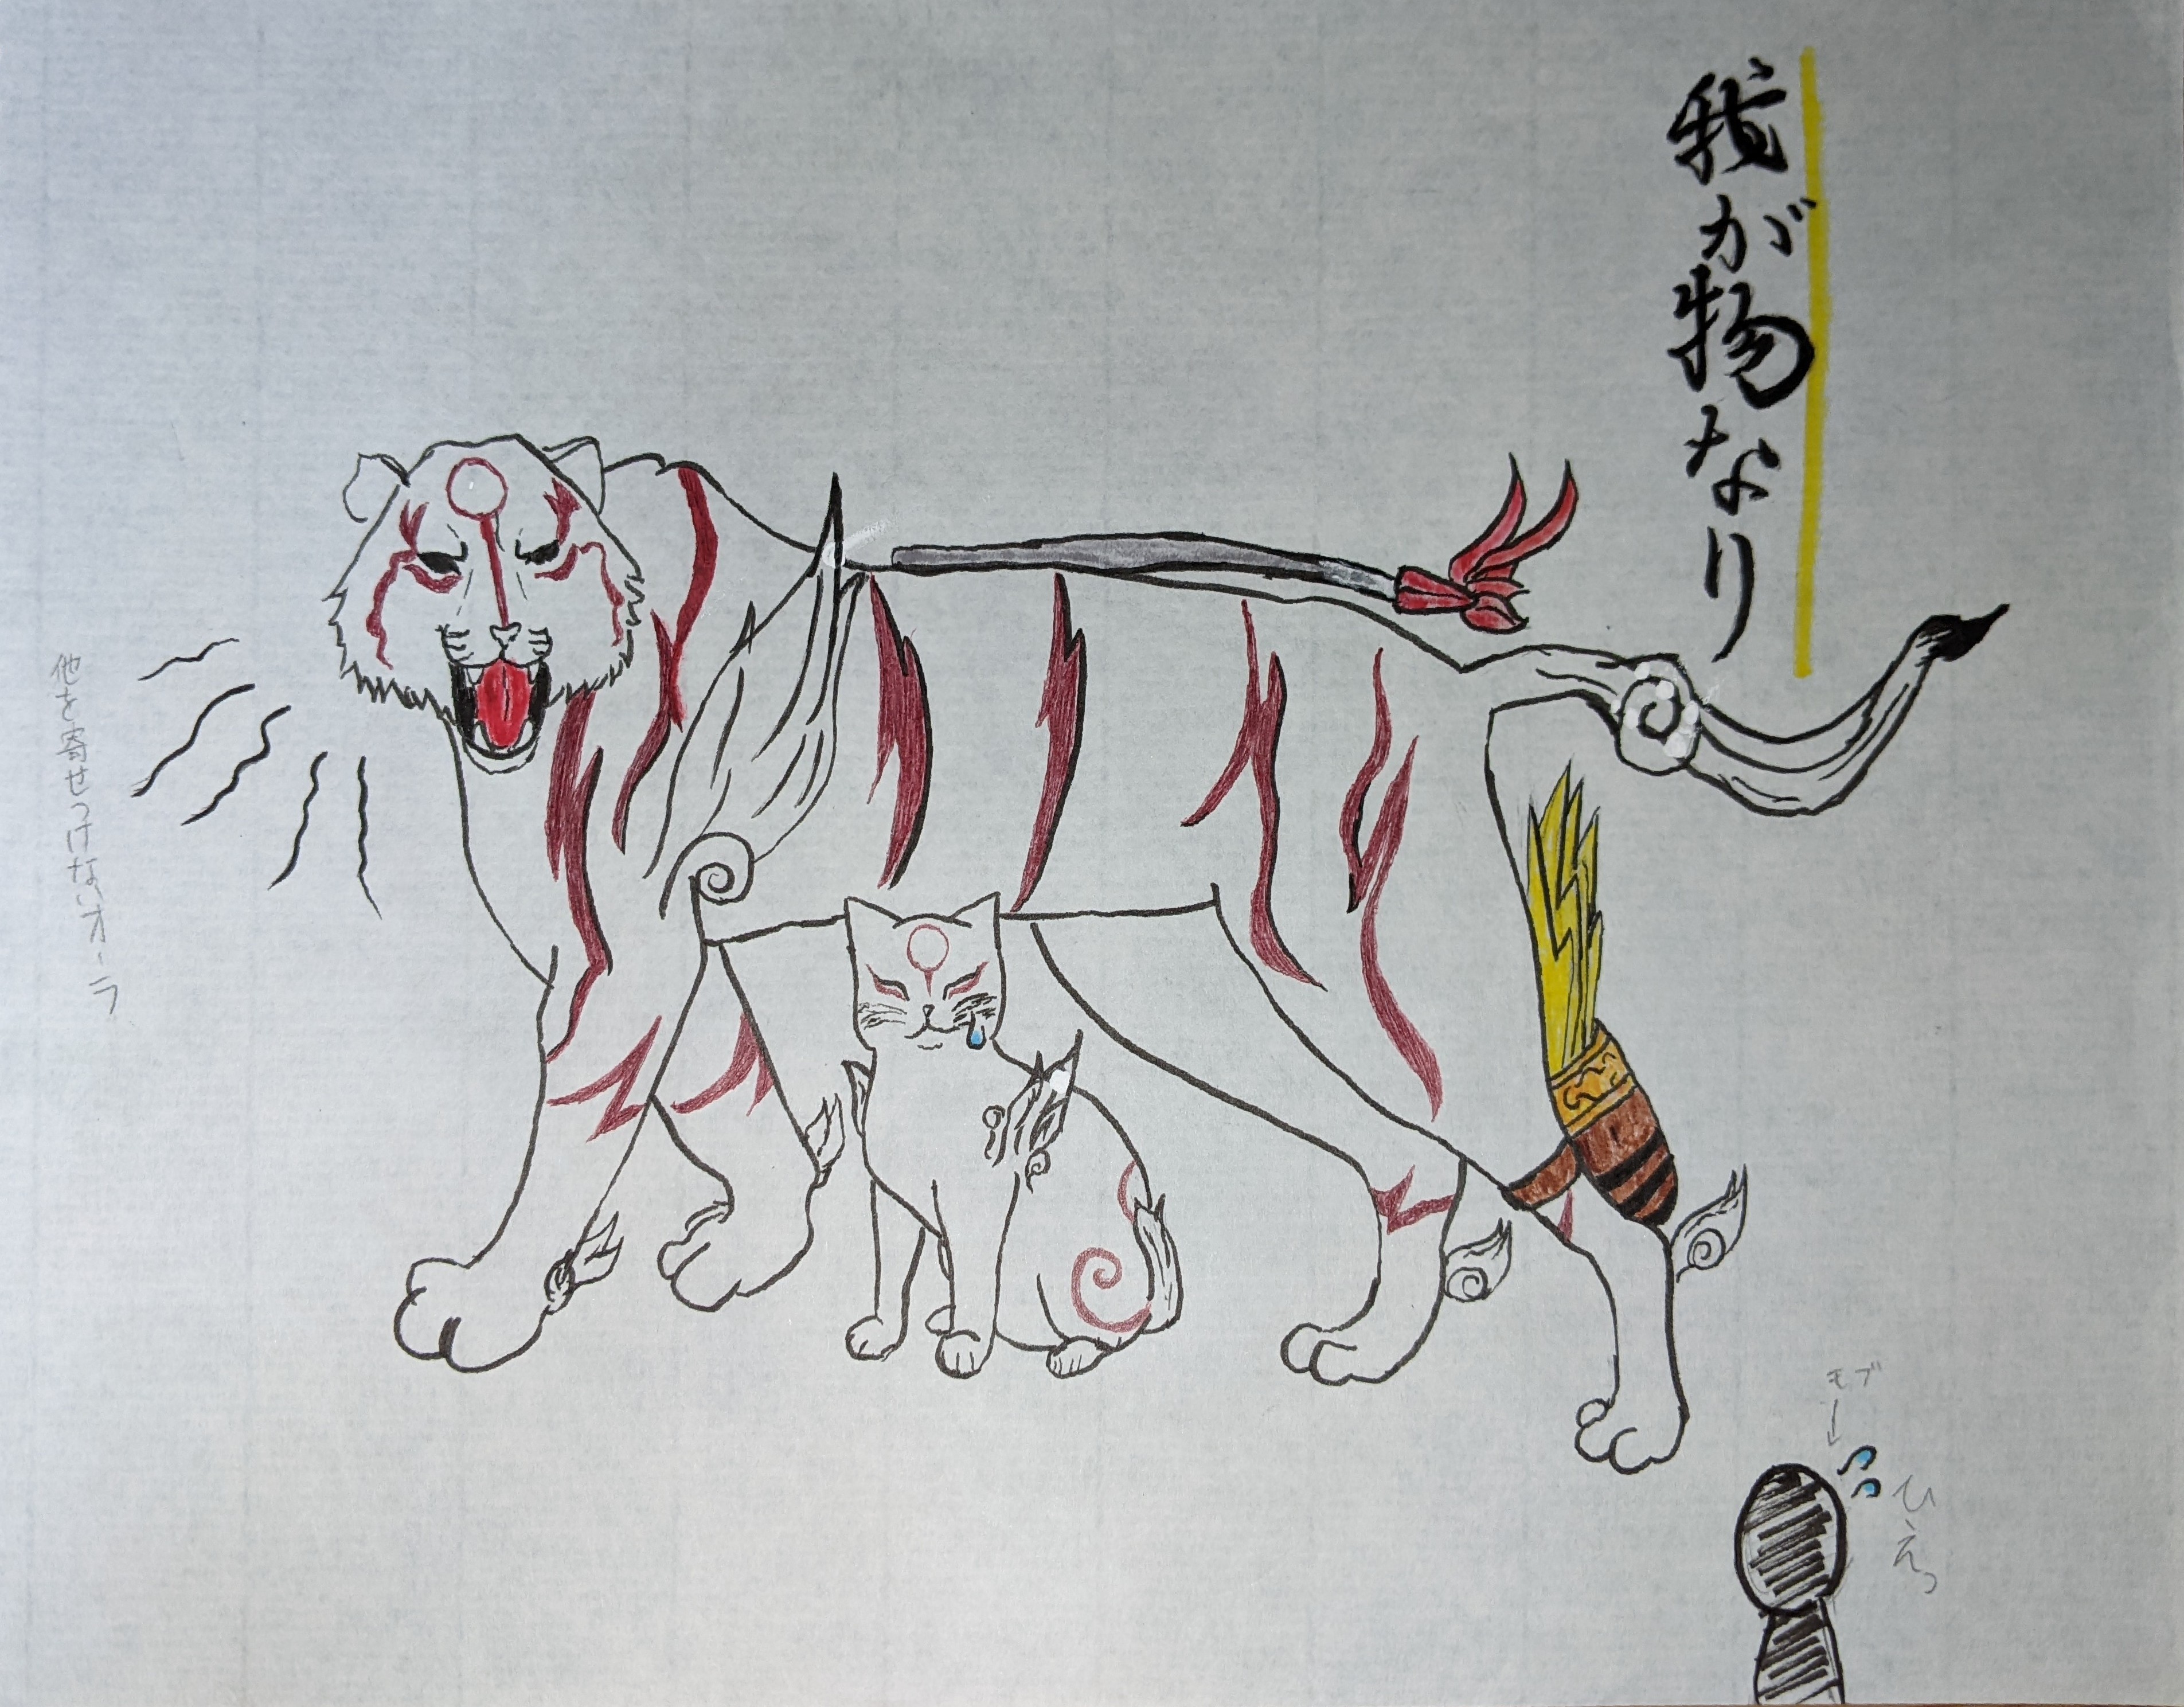 我が物なり
モブ
ひえっ
他を寄せつけないオーラ